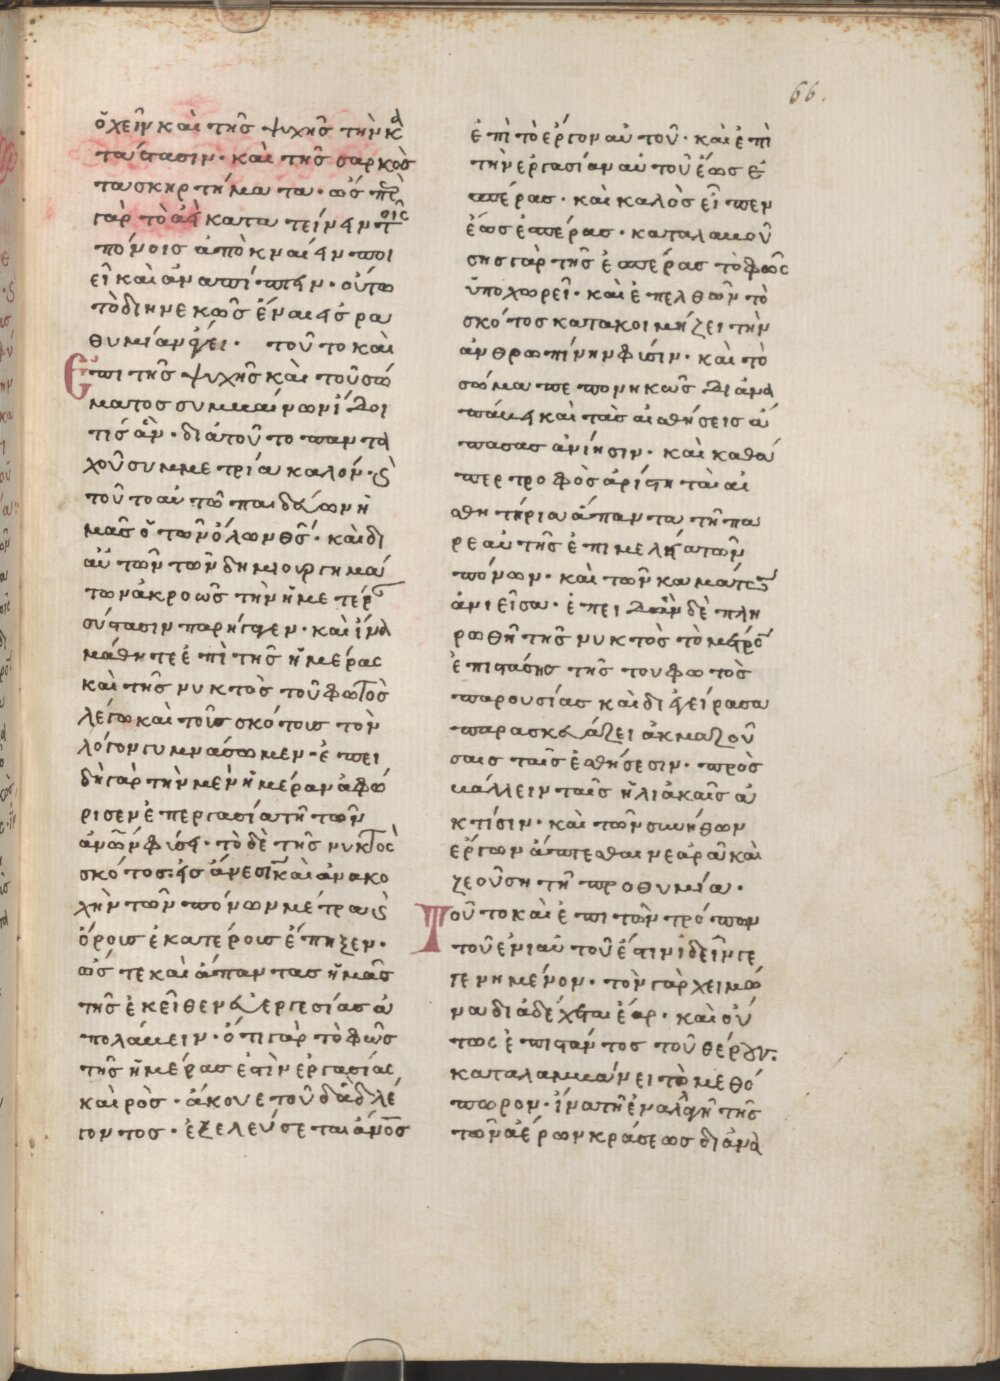 66.
ὀχεῖν καὶ τῆς ψυχῆς τὴν κα
τάστασιν· καὶ τῆς σαρκὸς
τὰ σκηρτήματα· ὡς
γὰρ τὸ ἀεὶ κατατείνειν τοῖς
πόνοις ἀποκναίειν ποι
εῖ καὶ ἀναπίπτειν· οὕτω
τὸ διηνεκῶς εἶναι εἰς ῥα
θυμίαν ἄγει· τοῦτο καὶ
ἐπὶ τῆς ψυχῆς καὶ τοῦ σώ
ματος συμβαῖνον ἴδοι
τις ἄν· διὰ τοῦτο πανταχοῦ
συμμετρία καλόν· καὶ
τοῦτο αὐτῶ παιδεύων ἡ
μᾶς ὁ τῶν ὅλων θς· καὶ δι
αὐτῶν τῶν δημιουργημά
των ἀκροως τὴν ἡμετέραν
σύστασιν παρήγαγεν· καὶ ἵνα
μάθητε ἐπὶ τῆς ἡμέρας
καὶ τῆς νυκτὸς τοῦ φωτὸς
λέγω καὶ τοῦ σκότους τὸν
λόγον γυμνάσωμεν· ἐπει
δὴ γὰρ τὴν μὲν ἡμέραν ἀφώ
ρισεν ἐπ ἐργασία τῆ τῶν
ἀνων φύσει· τὸ δὲ τῆς νυκτὸς
σκότος· εἰς ἄνεσιν καὶ ἀνακο
χὴν τῶν πόνων μέτρα καὶ
ὅροις ἑκατέροις ἔπηξεν·
ὥστε καὶ ἅπαντας ἡμᾶς
τῆς ἐκεῖθεν εὐεργεσίας ἀ
πολάβειν· ὅτι γὰρ τὸ φῶς
τῆς ἡμέρας ἐστὶν ἐργασίας
καιρὸς· ἄκουε τοῦ δαδ λέ
γοντος· ἐξελεύσεται ἄνος
ἐπὶ τὸ ἔργον αὐτοῦ· καὶ ἐπὶ
τὴν ἐργασίαν αὐτοῦ ἕως ἑ
σπέρας· καὶ καλὸς εἶπεν
ἕως ἑσπέρας· καταλαβού
σης γὰρ τῆς ἑσπέρας τὸ φῶς
ὑποχωρεῖ· καὶ ἐπελθὼν τὸ
σκότος κατακοιμήζει τὴν
ἀνθρωπίνην φύσιν· καὶ τὸ
σῶμα πεπονηκῶς διανα
παύει καὶ τὰς αἰσθήσεις ἁ
πάσας ἀνίησιν· καὶ καθά
περ τροφὸς ἀρίστη τὰ αἰ
σθητήρια ἅπαντα τῆ πα
ρ ἑαυτῆς ἐπιμελεία τῶν
πόνων· καὶ τῶν καμάτων
ἀνιεῖσα· ἐπειδὰν δὲ πλη
ρωθῆ τῆς νυκτὸς τὸ μέτρον
ἐπιστάσης τῆς του φωτὸς
παρουσίας καὶ διεγείρασα
παρασκευάζει ἀκμαζού
σαις ταῖς ἐσθήσεσιν· πρὸς
βάλλειν ταῖς ἡλιακαῖς ἀ
κτίσιν· καὶ τῶν συνήθων
ἔργων ἅπτεσθαι νεαρᾶ καὶ
ζεούση τῆ προθυμία·
Τοῦτο καὶ ἐπὶ τῶν τρόπων
τοῦ ἐνιαυτοῦ ἔστιν ἰδεῖν γε
γενημένον· τὸν γὰρ χειμῶ
να διαδέχεται ἔαρ· καὶ οὕ
τως ἐπιστάντος τοῦ θέρους·
καταλαμβάνει τὸ μεθό
πωρον· ἵνα τῆ ἐναλαγῆ τῆς
τῶν ἀέρων κράσεως διανα